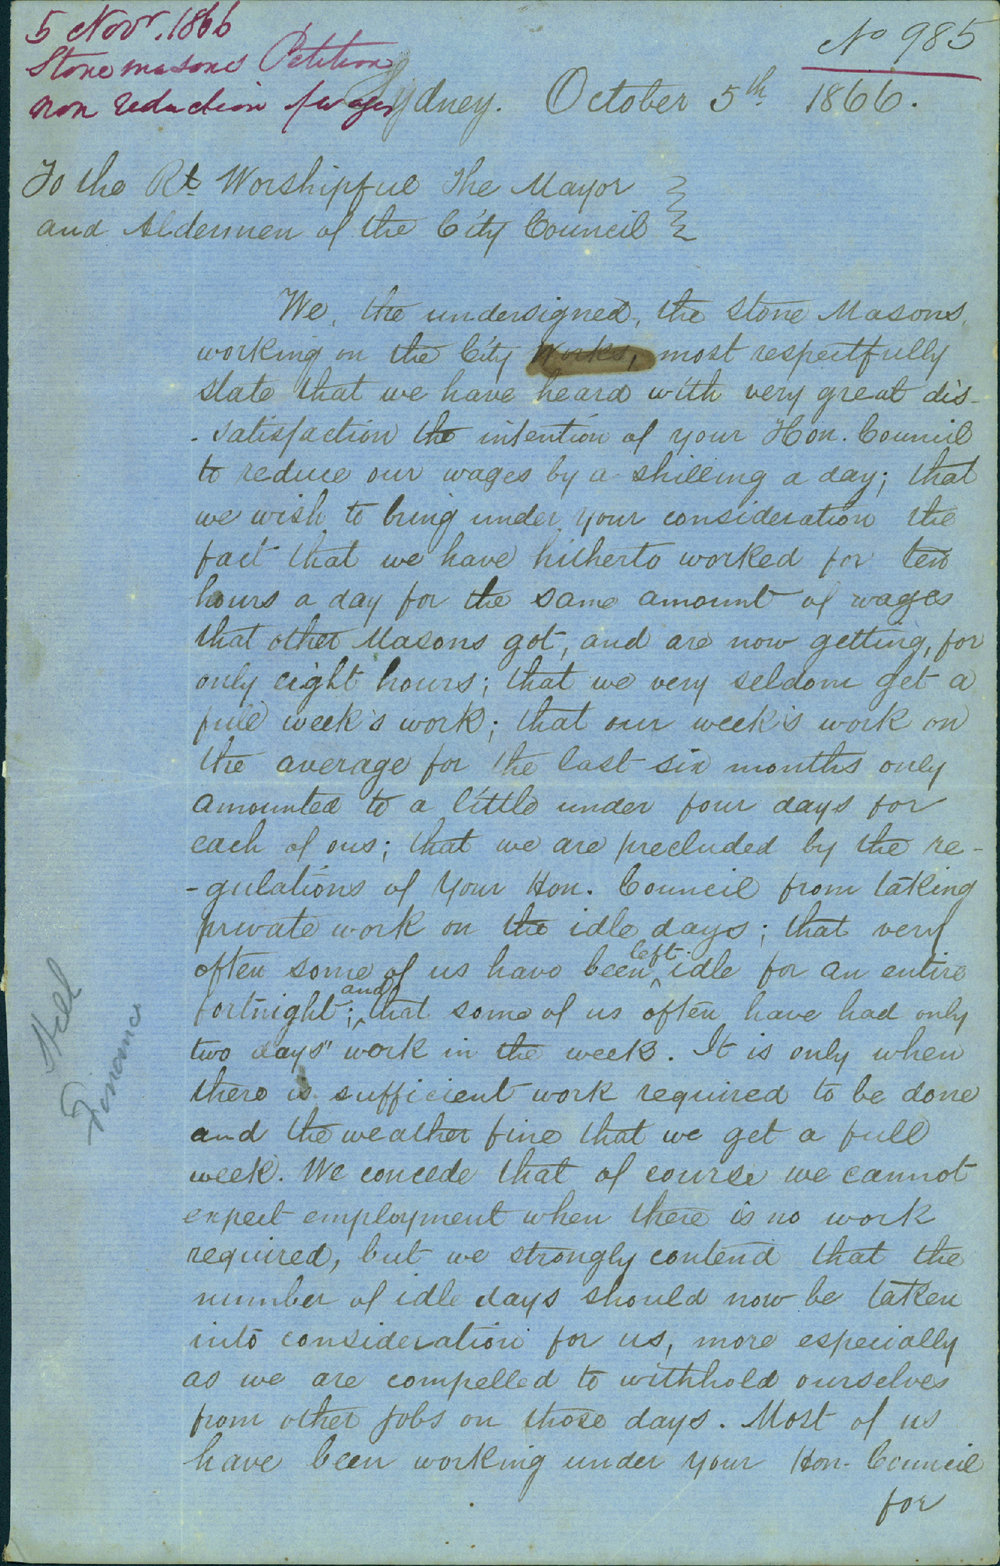 5 Novr. 1866
Stonemasons Petition
non reduction of wages
No 985
Sydney. October 5th 1866.
To the Rt Worshipful The Mayor
and Aldermen of the City Council
We, the undersigned, the Stone Masons
working on the City Works, most respectfully
state that we have heard with very great dis-
-satisfaction the intention of your Hon. Council
to reduce our wages by a shilling a day; that
we wish to bring under your consideration the
fact that we have hitherto worked for ten
hours a day for the same amount of wages
that other Masons got, and are now getting, for
only eight hours; that we very seldom get a
full week's work; that our week's work on
the average for the last six months only
amounted to a little under four days for
each of ous; that we are precluded by the re-
-gulations of Your Hon. Council from taking
private work on the idle days; that very
often some of us have been left idle for an entire
fortnight; and that some of us often have had only
two days' work in the week. It is only when
there is sufficient work required to be done
and the weather fine that we get a full
week. We concede that of course we cannot
expect employment when there is no work
required, but we strongly contend that the
number of idle days should now be taken
into consideration for us, more especially
as we are compelled to withhold ourselves
from other jobs on those days. Most of us
have been working under your Hon. Council
for
Finance